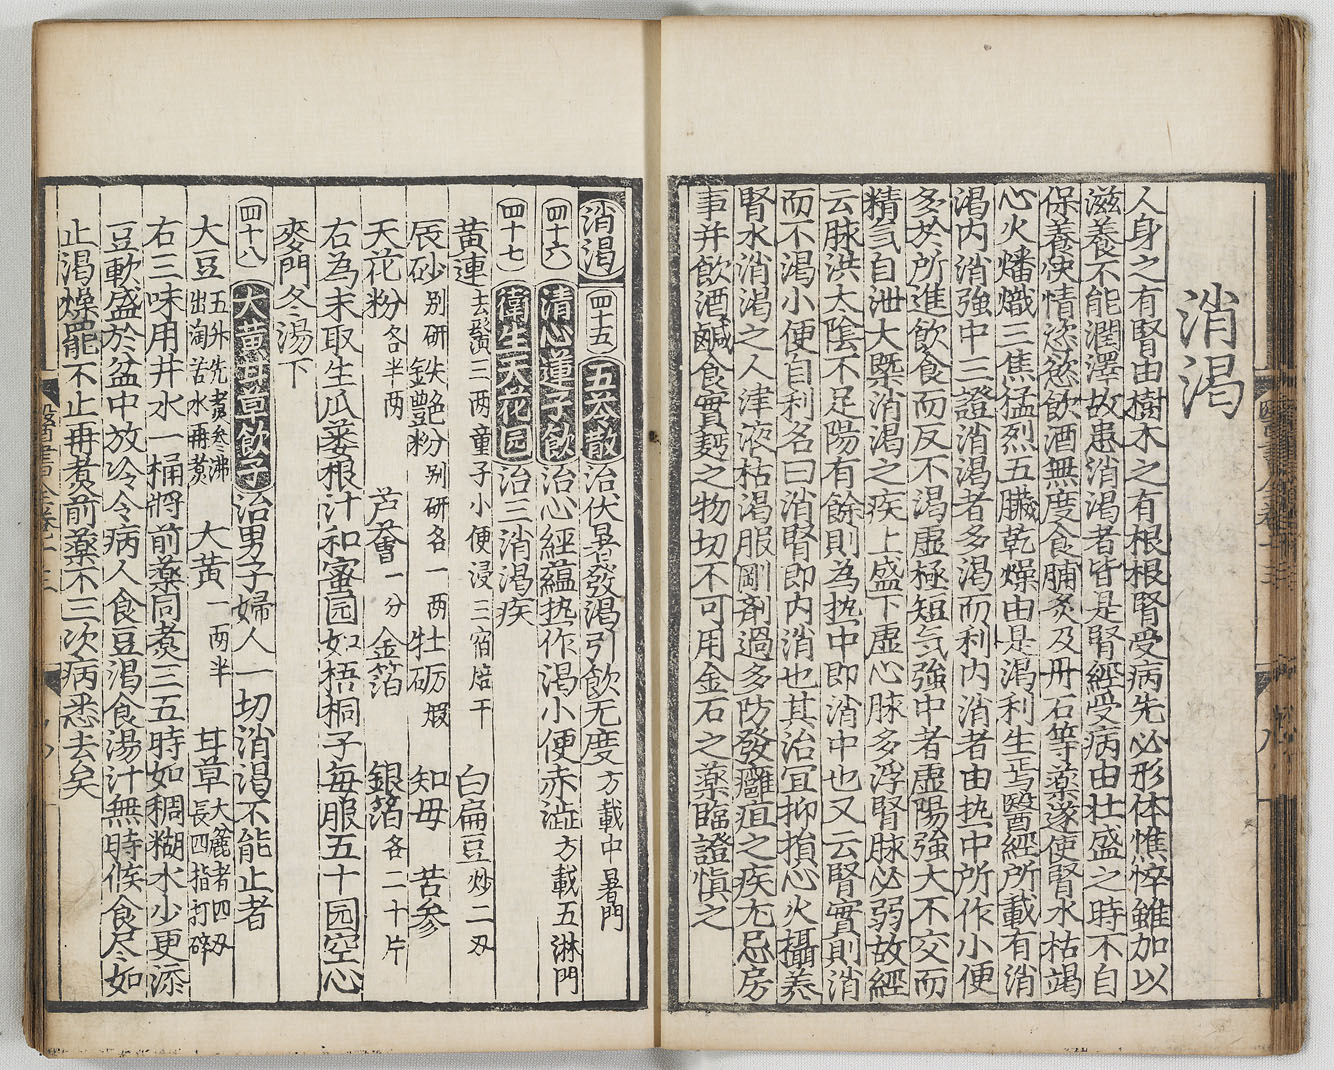 消渴
人身之有腎由樹木之有根根腎受病先必形体憔悴雖加以
滋養不能潤澤故患消渴者皆是腎經受病由壮盛之時不自
保養快情恣慾飲酒無度食脯炙及丹石等藥遂使腎水枯竭
心火燔熾三焦猛烈五臟乾燥由是渴利生焉醫經所載有消
渴内消強中三證消渴者多渴而利内消者由热中所作小便
多於所進飲食而反不渴虛極短气強中者虛陽強大不交而
精氣自泄大槩消渴之疾上盛下虛心脉多浮腎脉必弱故經
云脉洪大陰不足陽有餘則為热中即消中也又云腎實則消
而不渴小便自利名曰消腎即内消也其治宜抑損心火攝养
腎水消渴之人津液枯渴服剛剤過多防發癰疽之疾尤忌房
事并飲酒鹹食實麪之物切不可用金石之藥臨證慎之
消渴 四十五 五苓散 治伏暑發渴引飲无度 方載中暑門
四十六 清心蓮子飲 治心經蘊热作渴小便赤澁 方載五淋門
四十七 衛生天花园 治三消渴疾
黄連 去鬚三两童子小便浸三宿焙干 白扁豆 炒二刄
辰砂 别研 鉄艶粉 别研各一两 牡砺 煅 知母 苦参
天花粉 各半两 芦薈 一分 金箔 銀箔 各二十片
右為末取生瓜蔞根汁和蜜园如梧桐子每服五十园空心
麥門冬湯下
四十八 大黄甘草飲子 治男子婦人一切消渴不能止者
大豆 五升先煮叁沸出淘苦水再煮 大黄 一两半 甘草 大麄者四刄長四指打碎
右三味用井水一桶將前藥同煮三五時如稠糊水少更添
豆軟盛於盆中放冷令病人食豆渴食湯汁無時候食尽如
止渴燥罷不止再煮前藥不三次病悉去矣